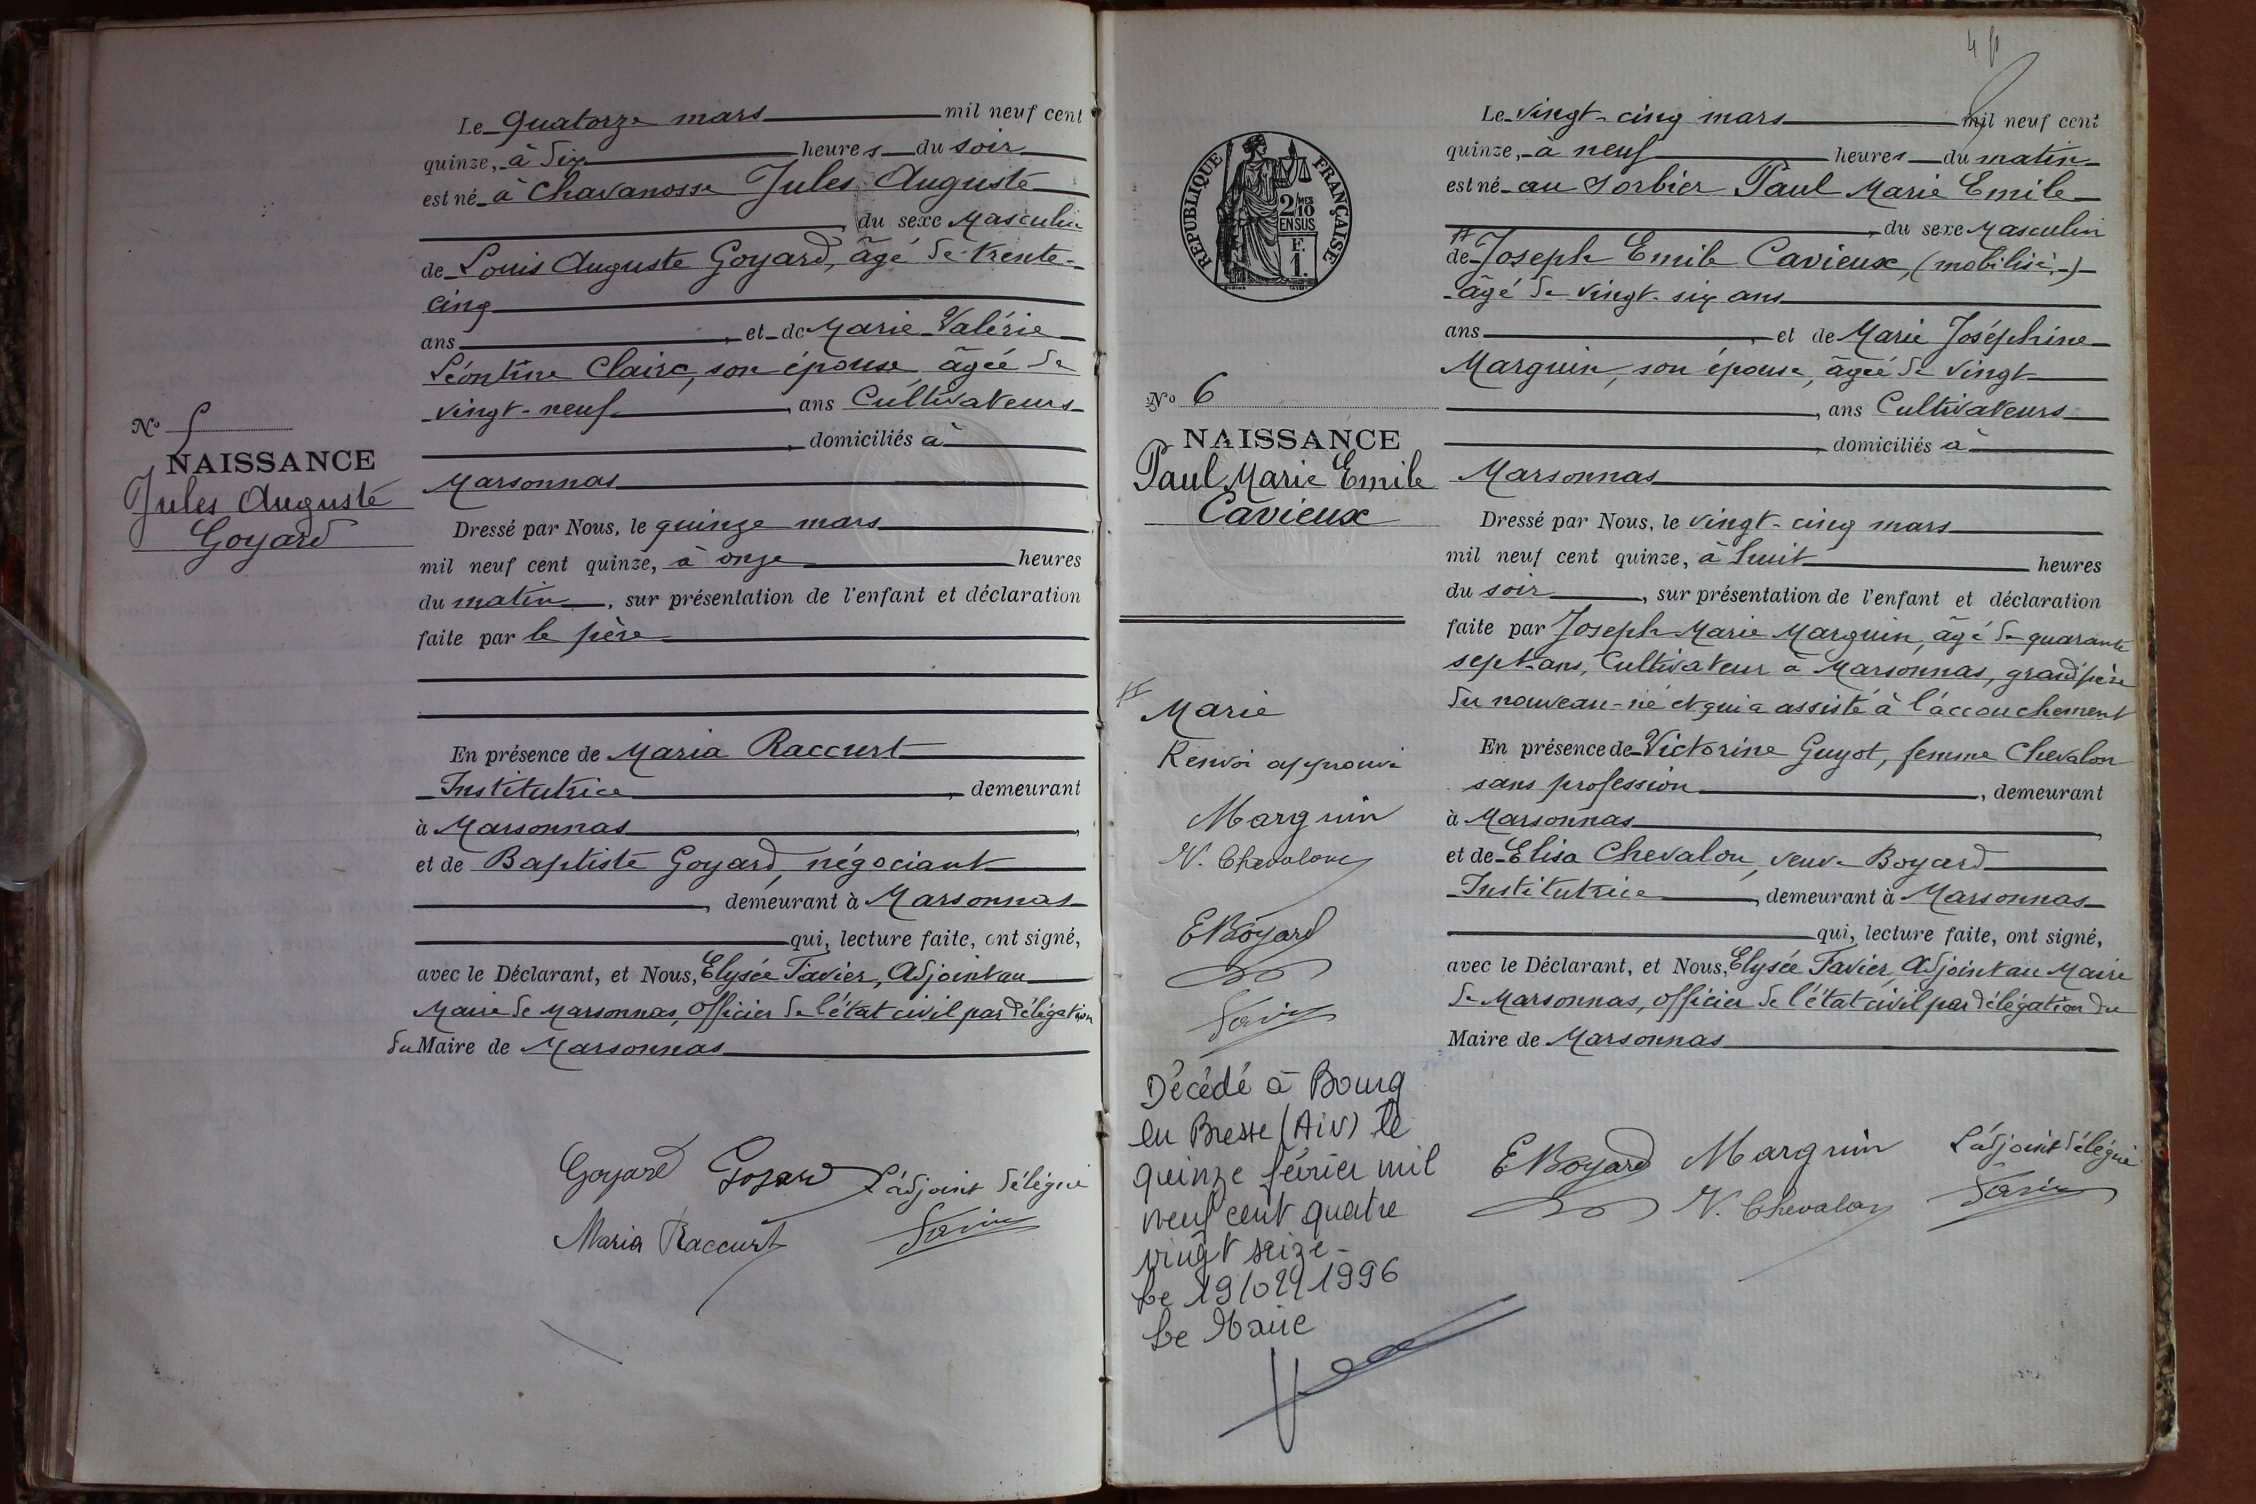 Le quatorze mars mil neuf cent
quinze, à dix heures du soir
est né à Chavanosse Jules Auguste
, du sexe Masculin
de Louis Auguste Goyard, âgé de trente-
cinq
ans , et de Marie Valérie
Léontine Claire, son épouse, âgée de
vingt-neuf , ans Cultivateurs
, domiciliés à
Marsonnas
Dressé par Nous, le quinze mars
mil neuf cent quinze, à onze heures
du matin , sur présentation de l'enfant et déclaration
faite par le père
En présence de Maria Raccurt
Institutrice , demeurant
à Marsonnas ,
et de Baptiste Goyard, négociant
, demeurant à Marsonnas
qui, lecture faite, ont signé,
avec le Déclarant, et Nous, Elysée Favier, Adjoint au
Maire de Marsonnas, Officier de l'état civil par délégation
du Maire de Marsonnas
Goyard Goyard L'adjoint délégué
Maria Raccurt Favier
No 5
NAISSANCE
Jules Auguste
Goyard
4
RÉPUBLIQUE FRANÇAISE
2/10MES
EN SUS
F.
1.
No 6
NAISSANCE
Paul Marie Emile
Cavieux
Marie
Renvoi approuvé
Marguin
V. Chevalon
E Boyard
Favier
Décédé à Bourg
en Bresse (Ain) le
quinze février mil
neuf cent quatre
vingt seize -
Le 19/02/1996
Le Maire
Le vingt-cinq mars mil neuf cent
quinze, à neuf heures du matin
est né au Sorbier Paul Marie Emile
, du sexe Masculin
de Joseph Emile Cavieux, (mobilisé,-)
âgé de vingt-six ans
ans , et de Marie Joséphine
Marguin, son épouse, âgée de vingt
, ans Cultivateurs
, domiciliés à
Marsonnas
Dressé par Nous, le vingt-cinq mars
mil neuf cent quinze, à huit heures
du soir , sur présentation de l'enfant et déclaration
faite par Joseph Marie Marguin, âgé de quarante
sept ans, Cultivateur à Marsonnas, grand'père
du nouveau-né et qui a assisté à l'accouchement
En présence de Victorine Guyot, femme Chevalon
sans profession , demeurant
à Marsonnas ,
et de Elisa Chevalon, veuve Boyard
Institutrice , demeurant à Marsonnas
qui, lecture faite, ont signé,
avec le Déclarant, et Nous, Elysée Favier, Adjoint au Maire
de Marsonnas, Officier de l'état civil par délégation du
Maire de Marsonnas
E Boyard Marguin L'adjoint délégué
V. Chevalon Favier